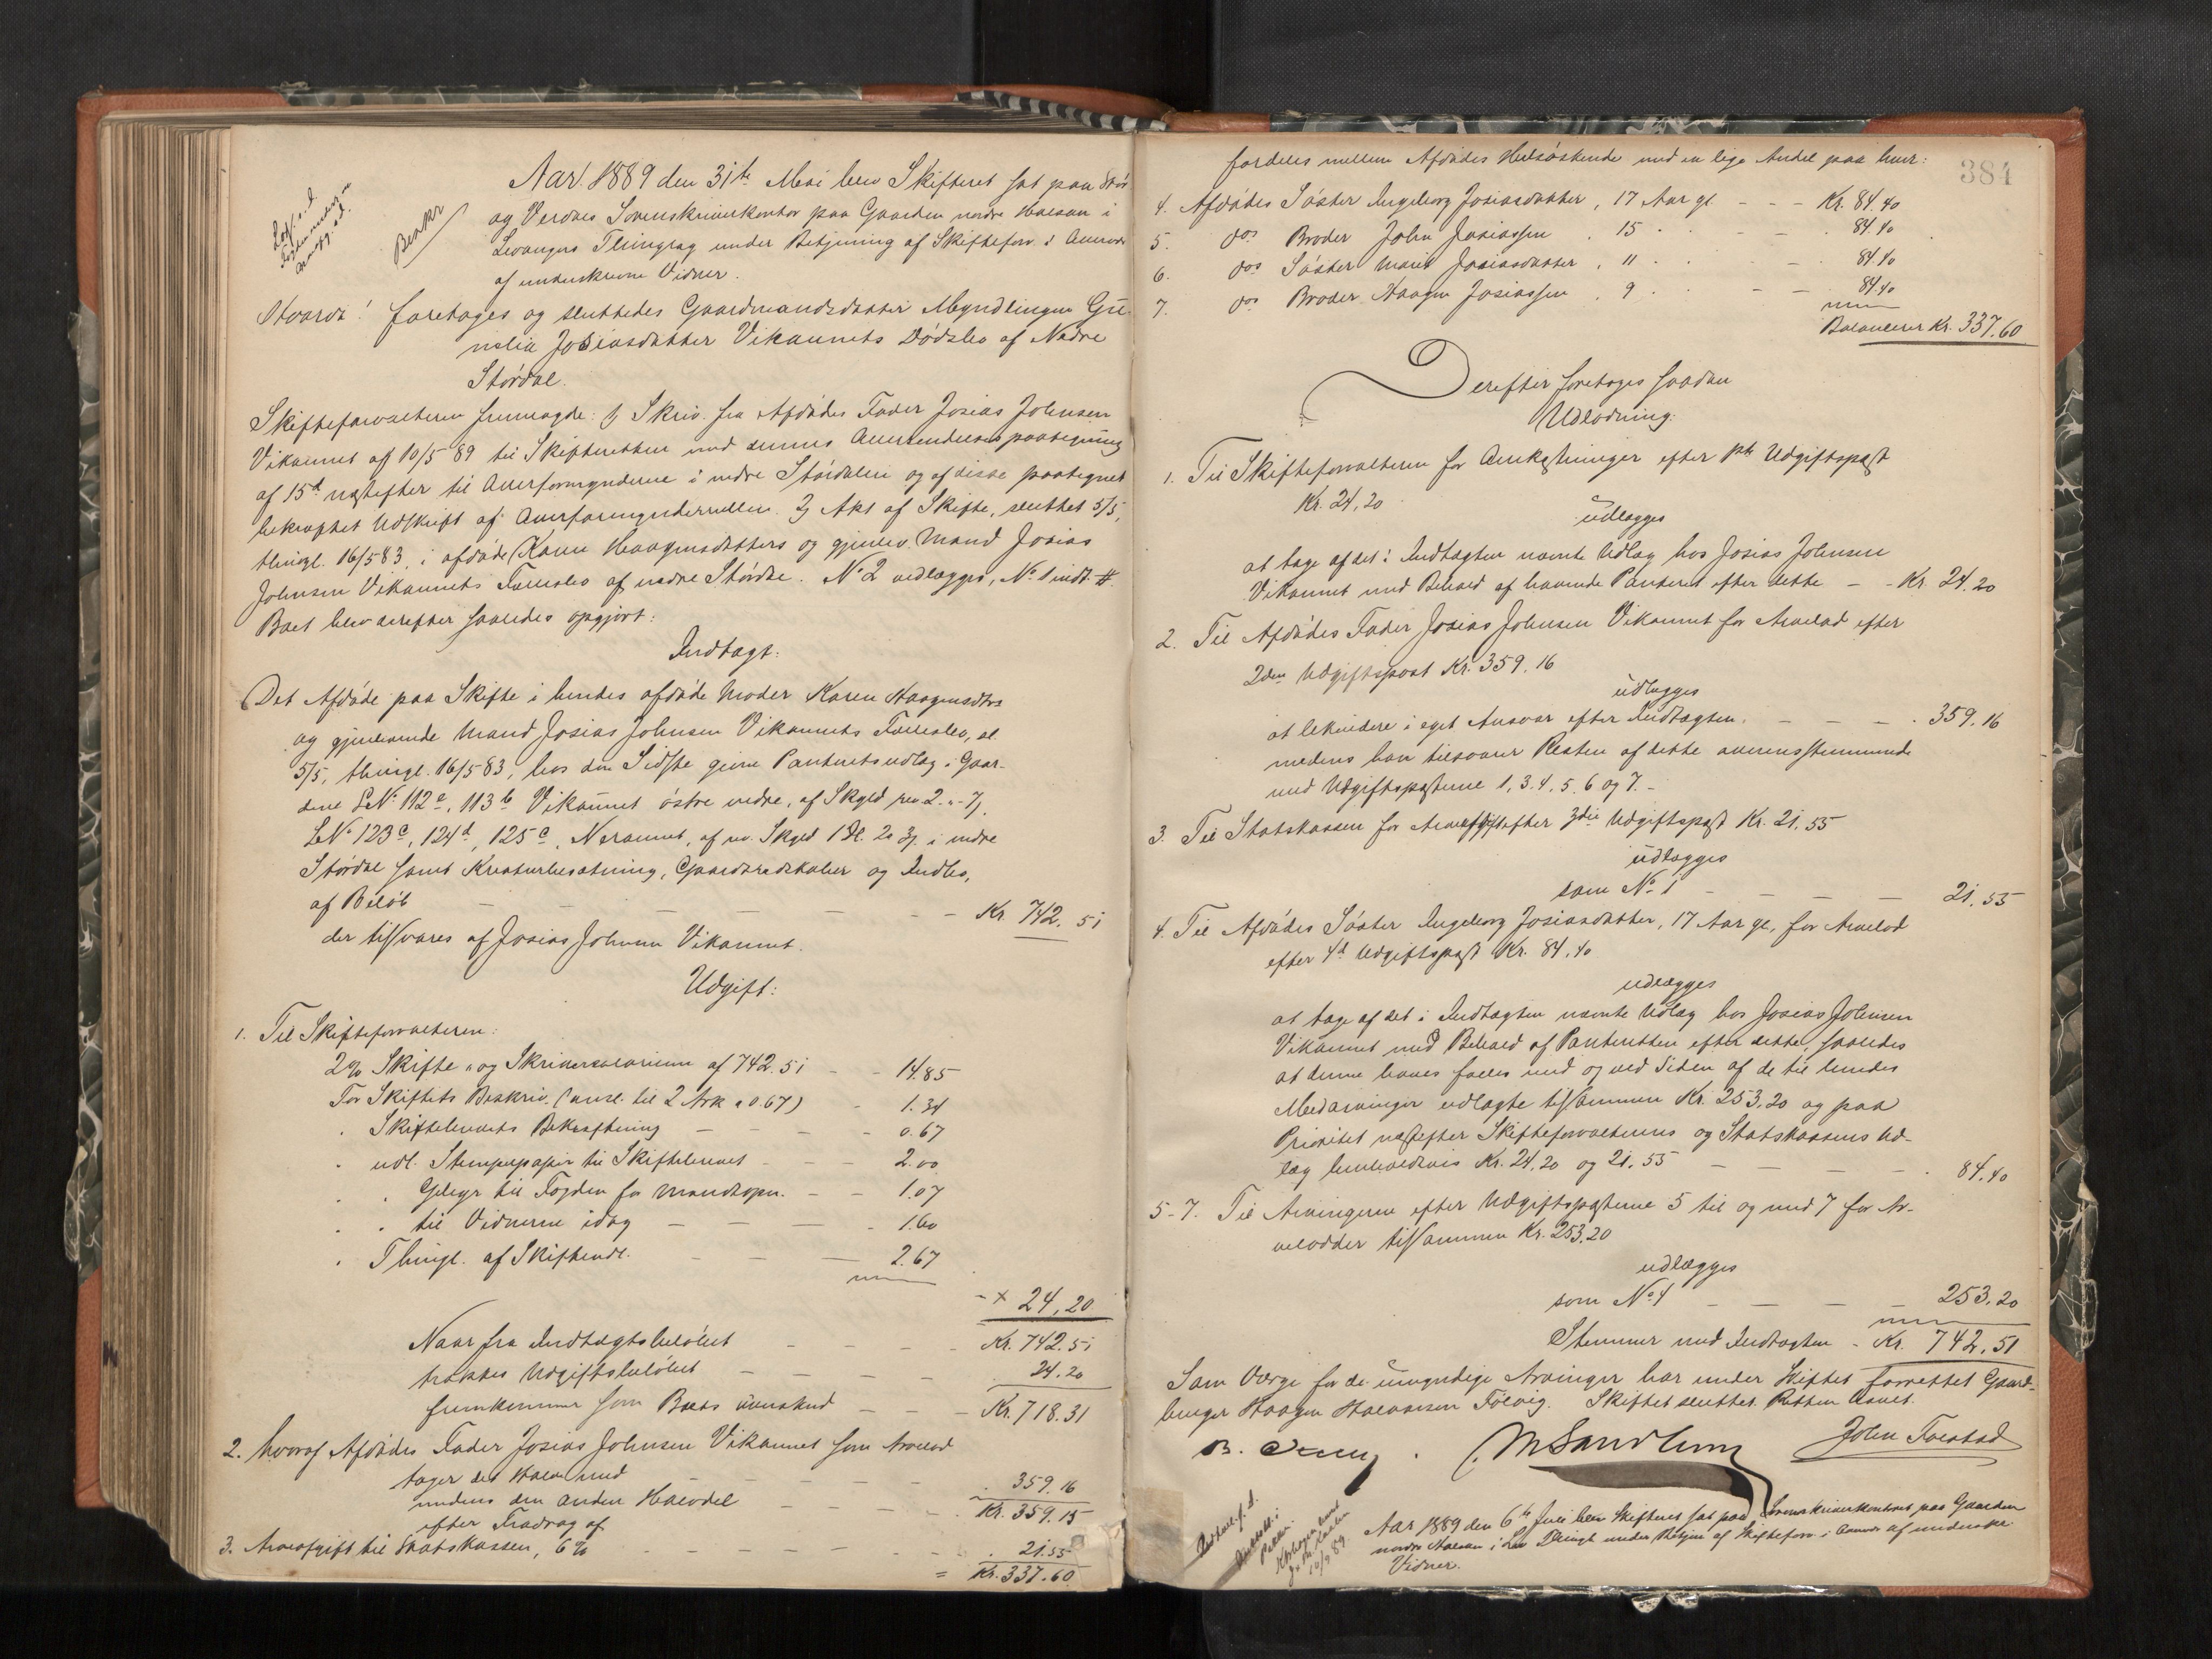 Aar 1889 den 31te Mai blev Skifteret sat paa Stør
og Verdals Sorenskriverkontor paa Gaarden nordre Halsan i
Levangers Thinglag under Betjening af Skifteforv. i Overvær
af underskrevne Vidner.
Beskr
Hvorda! foretages og sluttedes Gaardmandsdatter Myndlingen Gu-
nelia Josiasdatter Vikannets Dødsbo af Nedre
Stördal.
Skifteforvalteren fremlagde: 1) Skriv. fra Afdødes Fader Josias Johnsen
Vikannet af 10/5 89 til Skifteretten med dennes Anmerdelsespaategning
af 15d næstefter til Overformynderne i nedre Stördalen og af disse paategnet
bekræftet Udskrift af Overformynderrullen. 2) Akt af Skifte, sluttet 5/5,
thingl. 16/5 83, i afdøde Karen Haagensdatters og gjenlev. Mand Josias
Johnsen Vikannets Fællesbo af nedre Stördal. No 2 vedlægges, No 1 indt. #.
Boet blev derefter saaledes opgjort:
Indtægt:
Det Afdøde paa Skifte i hendes afdøde Moder Karen Haagensdtrs
og gjenlevende Mand Josias Johnsen Vikannets Fællesbo, sl.
5/5, thingl. 16/5 83, hos den Sidste givne Panterets udlæg i Gaar-
dene LNo 112a, 113b Vikannet østre nedre, af Skyld rev. 2 - " - 7/,
LNo 123c, 124d, 125c, Neraunet, af rev. Skyld 1 Dl. 2o 3/. i nedre
Stördal samt Kreaturbesætning, Gaardsredskaber og Indbo,
af Beløb — — — — — Kr. 742.51
der tilsvares af Josias Johnsen Vikannet.
Udgift:
1. Til Skifteforvalteren:
2% Skifte- og Skriversalarium af 742.51 - - 14.85
For Skiftets Beskriv. (ansl. til 2 Ark a 0.67) - 1.34
" Skiftebrevets Bekræftning — — — 0.67
" udl. Stempelpapir til Skiftebrevet — — 2.00
" " Gebyr til Fogden for Mandtopn. — — 1.07
" " til Vidnerne idag — — — 1.60
" Thingl. af Skifteudl. — — — 2.67
-+ 24,20
Naar fra Indtægtsbeløbet — — — Kr. 742.51
trækkes Udgiftsbeløbet — — — 24.20
fremkommer som Boets overskud — — — Kr. 718.31
2. hvoraf Afdødes Fader Josias Johnsen Vikannet som Arvelod
tager det Halve med — — — 359.16
medens den anden Halvdel — — — Kr. 359.15
efter Fradrag af
3. Arveafgift til Statskassen, 6% — — — 21.55
= Kr. 337.60
384
fordeles mellem Afdødes Helsøskende med en lige Andel paa hver:
4. Afdødes Søster Ingeborg Josiasdatter, 17 Aar gl. - - - Kr. 84.40
5. dos Broder John Josiassen , 15 . . — — . 84.40
6. dos Søster Marit Josiasdatter , 11 . . — — 84.40
7. dos Broder Haagen Josiassen , 9 . . — — 84.40
Balancerer Kr. 337.60
Derefter foretoges saadan
Udlodning:
1. Til Skifteforvalteren for Omkostninger efter 1ste Udgiftspost
Kr. 24,20
udlægges
at tage af det i Indtægten nævnte Udlæg hos Josias Johnsen
Vikannet med Behold af havende Panteret efter dette — - Kr. 24.20
2. Til Afdødes Fader Josias Johnsen Vikannet for Arvelod efter
2den Udgiftspost Kr. 359.16
udlægges
at likvidere i eget Ansvar efter Indtægten. — — — . 359.16
medens han tilsvarer Resten af dette overensstemmende
med Udgiftsposterne 1, 3. 4. 5. 6 og 7. -
3. Til Statskassen for Arveafgift efter 3die Udgiftspost Kr. 21.55
udlægges
som No 1 — — — 21.55
4. Til Afdødes Søster Ingeborg Josiasdatter, 17 Aar gl., for Arvelod
efter 4d Udgiftspost Kr. 84.40
udlægges
at tage af det i Indtægten nævnte Udlæg hos Josias Johnsen
Vikannet med Behold af Panteretten efter dette, saaledes
at denne haves fælles med og ved Siden af de til hendes
Medarvinger udlagte tilsammen Kr. 253.20 og paa
Prioritet næstefter Skifteforvalterens og Statskassens Ud-
læg henholdsvis Kr. 24.20 og 21.55 — — — . 84.40
5-7. Til Arvingerne efter Udgiftsposterne 5 til og med 7 for Ar-
velodder tilsammen Kr. 253.20
udlægges
som No 4 — — — 253.20
Stemmer med Indtægten - Kr. 742.51
Som Værge for de umyndige Arvinger har under Skiftet forrettet Gaard-
bruger Haagen Halvorsen Folvig. Skiftet sluttet. Retten hævet.
MSandberg John Forstad
Aar 1889 den 6te Juli blev Skifteret sat paa Sorenskriverkontoret paa Gaarden
nordre Halsan i Lev. Thingl. under Betjen. af Skifteforv. i Overv. af underskr.
Vidner.